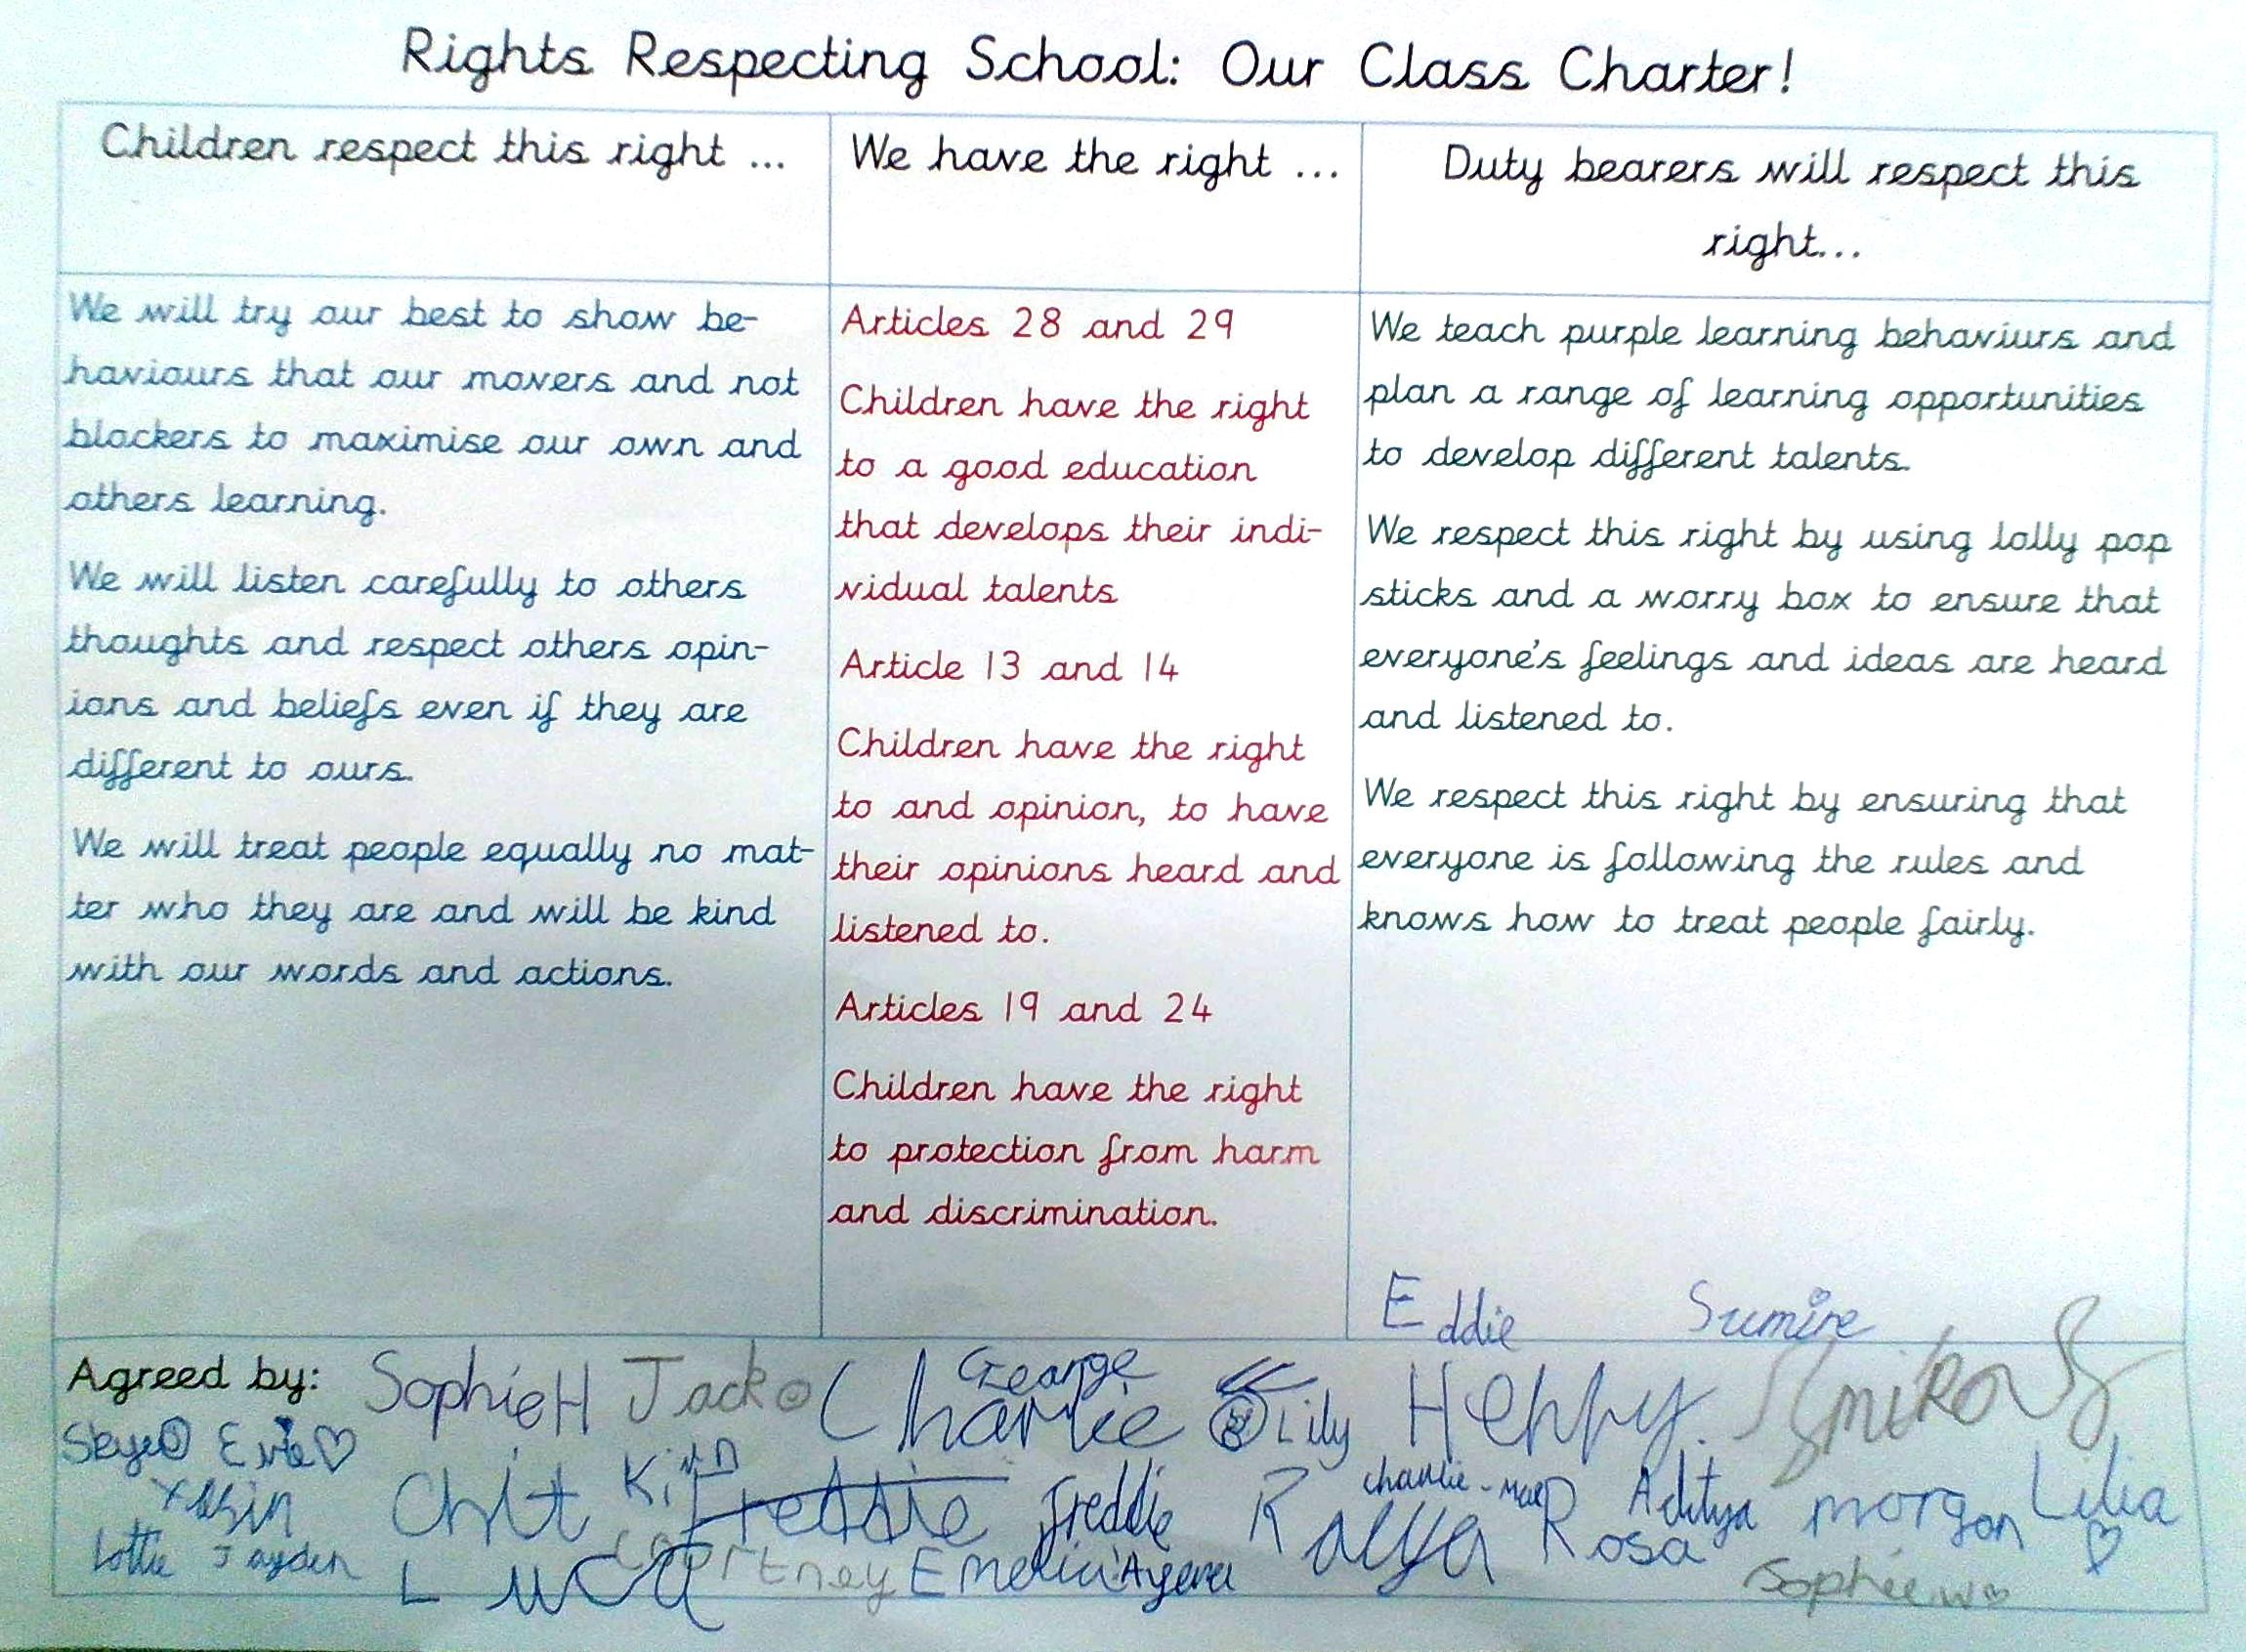 Rights Respecting School: Our Class Charter!
Children respect this right ...
We have the right ...
Duty bearers will respect this
right...
We will try our best to show be-
haviours that our movers and not
blockers to maximise our own and
others learning.
We will listen carefully to others
thoughts and respect others opin-
ions and beliefs even if they are
different to ours.
We will treat people equally no mat-
ter who they are and will be kind
with our words and actions.
Articles 28 and 29
Children have the right
to a good education
that develops their indi-
vidual talents
Article 13 and 14
Children have the right
to and opinion, to have
their opinions heard and
listened to.
Articles 19 and 24
Children have the right
to protection from harm
and discrimination.
We teach purple learning behaviurs and
plan a range of learning opportunities
to develop different talents.
We respect this right by using lolly pop
sticks and a worry box to ensure that
everyone's feelings and ideas are heard
and listened to.
We respect this right by ensuring that
everyone is following the rules and
knows how to treat people fairly.
Eddie Sumire
Agreed by: Sophie H Jack George Charlie Lily
Skye Evie
Chit Freddie Freddie Charlie-Mae Rosa Aditya morgan Lilia
Lottie Jayden Luca Courtney Sophie W